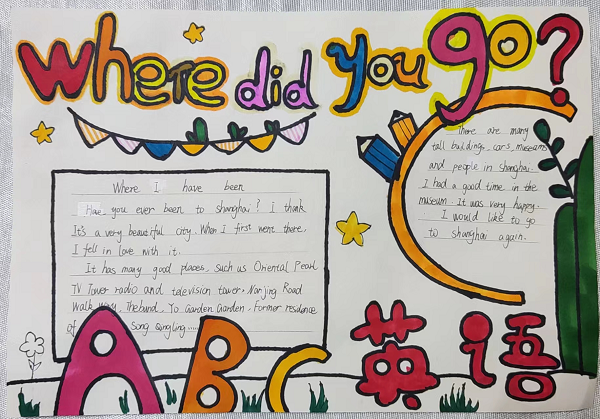 Where did you go?
Where I have been
Have you ever been to shanghai? I think
It's a very beautiful city. When I first went there,
I fell in love with it.
It has many good places, such us Oriental Pearl
TV Tower radio and television tower. Nanjing Road
Walk Way, Thebund, Yo Garden Garden. Former residence
of Song Qingling......
There are many
tall buildings, cars, museums
and people in Shanghai.
I had a good time in the
museum. It was very happy.
I would like to go
to shanghai again.
ABC 英语